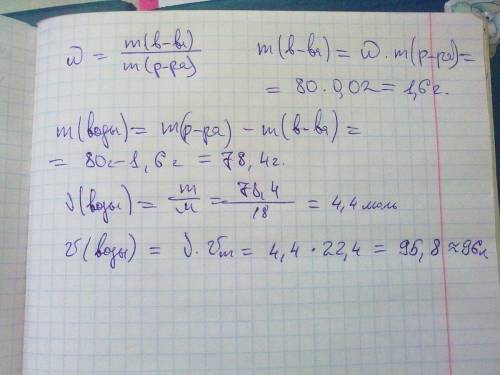 ω = m(в-ва) / m(р-ра)    m(в-ва) = ω · m(р-ра) =
= 80 · 0,02 = 1,6 г.
m(воды) = m(р-ра) - m(в-ва) =
= 80г - 1,6 г = 78,4г.
ν(воды) = m / M = 78,4 / 18 = 4,4 моль
V(воды) = ν · Vm = 4,4 · 22,4 = 95,8 ≈ 96л